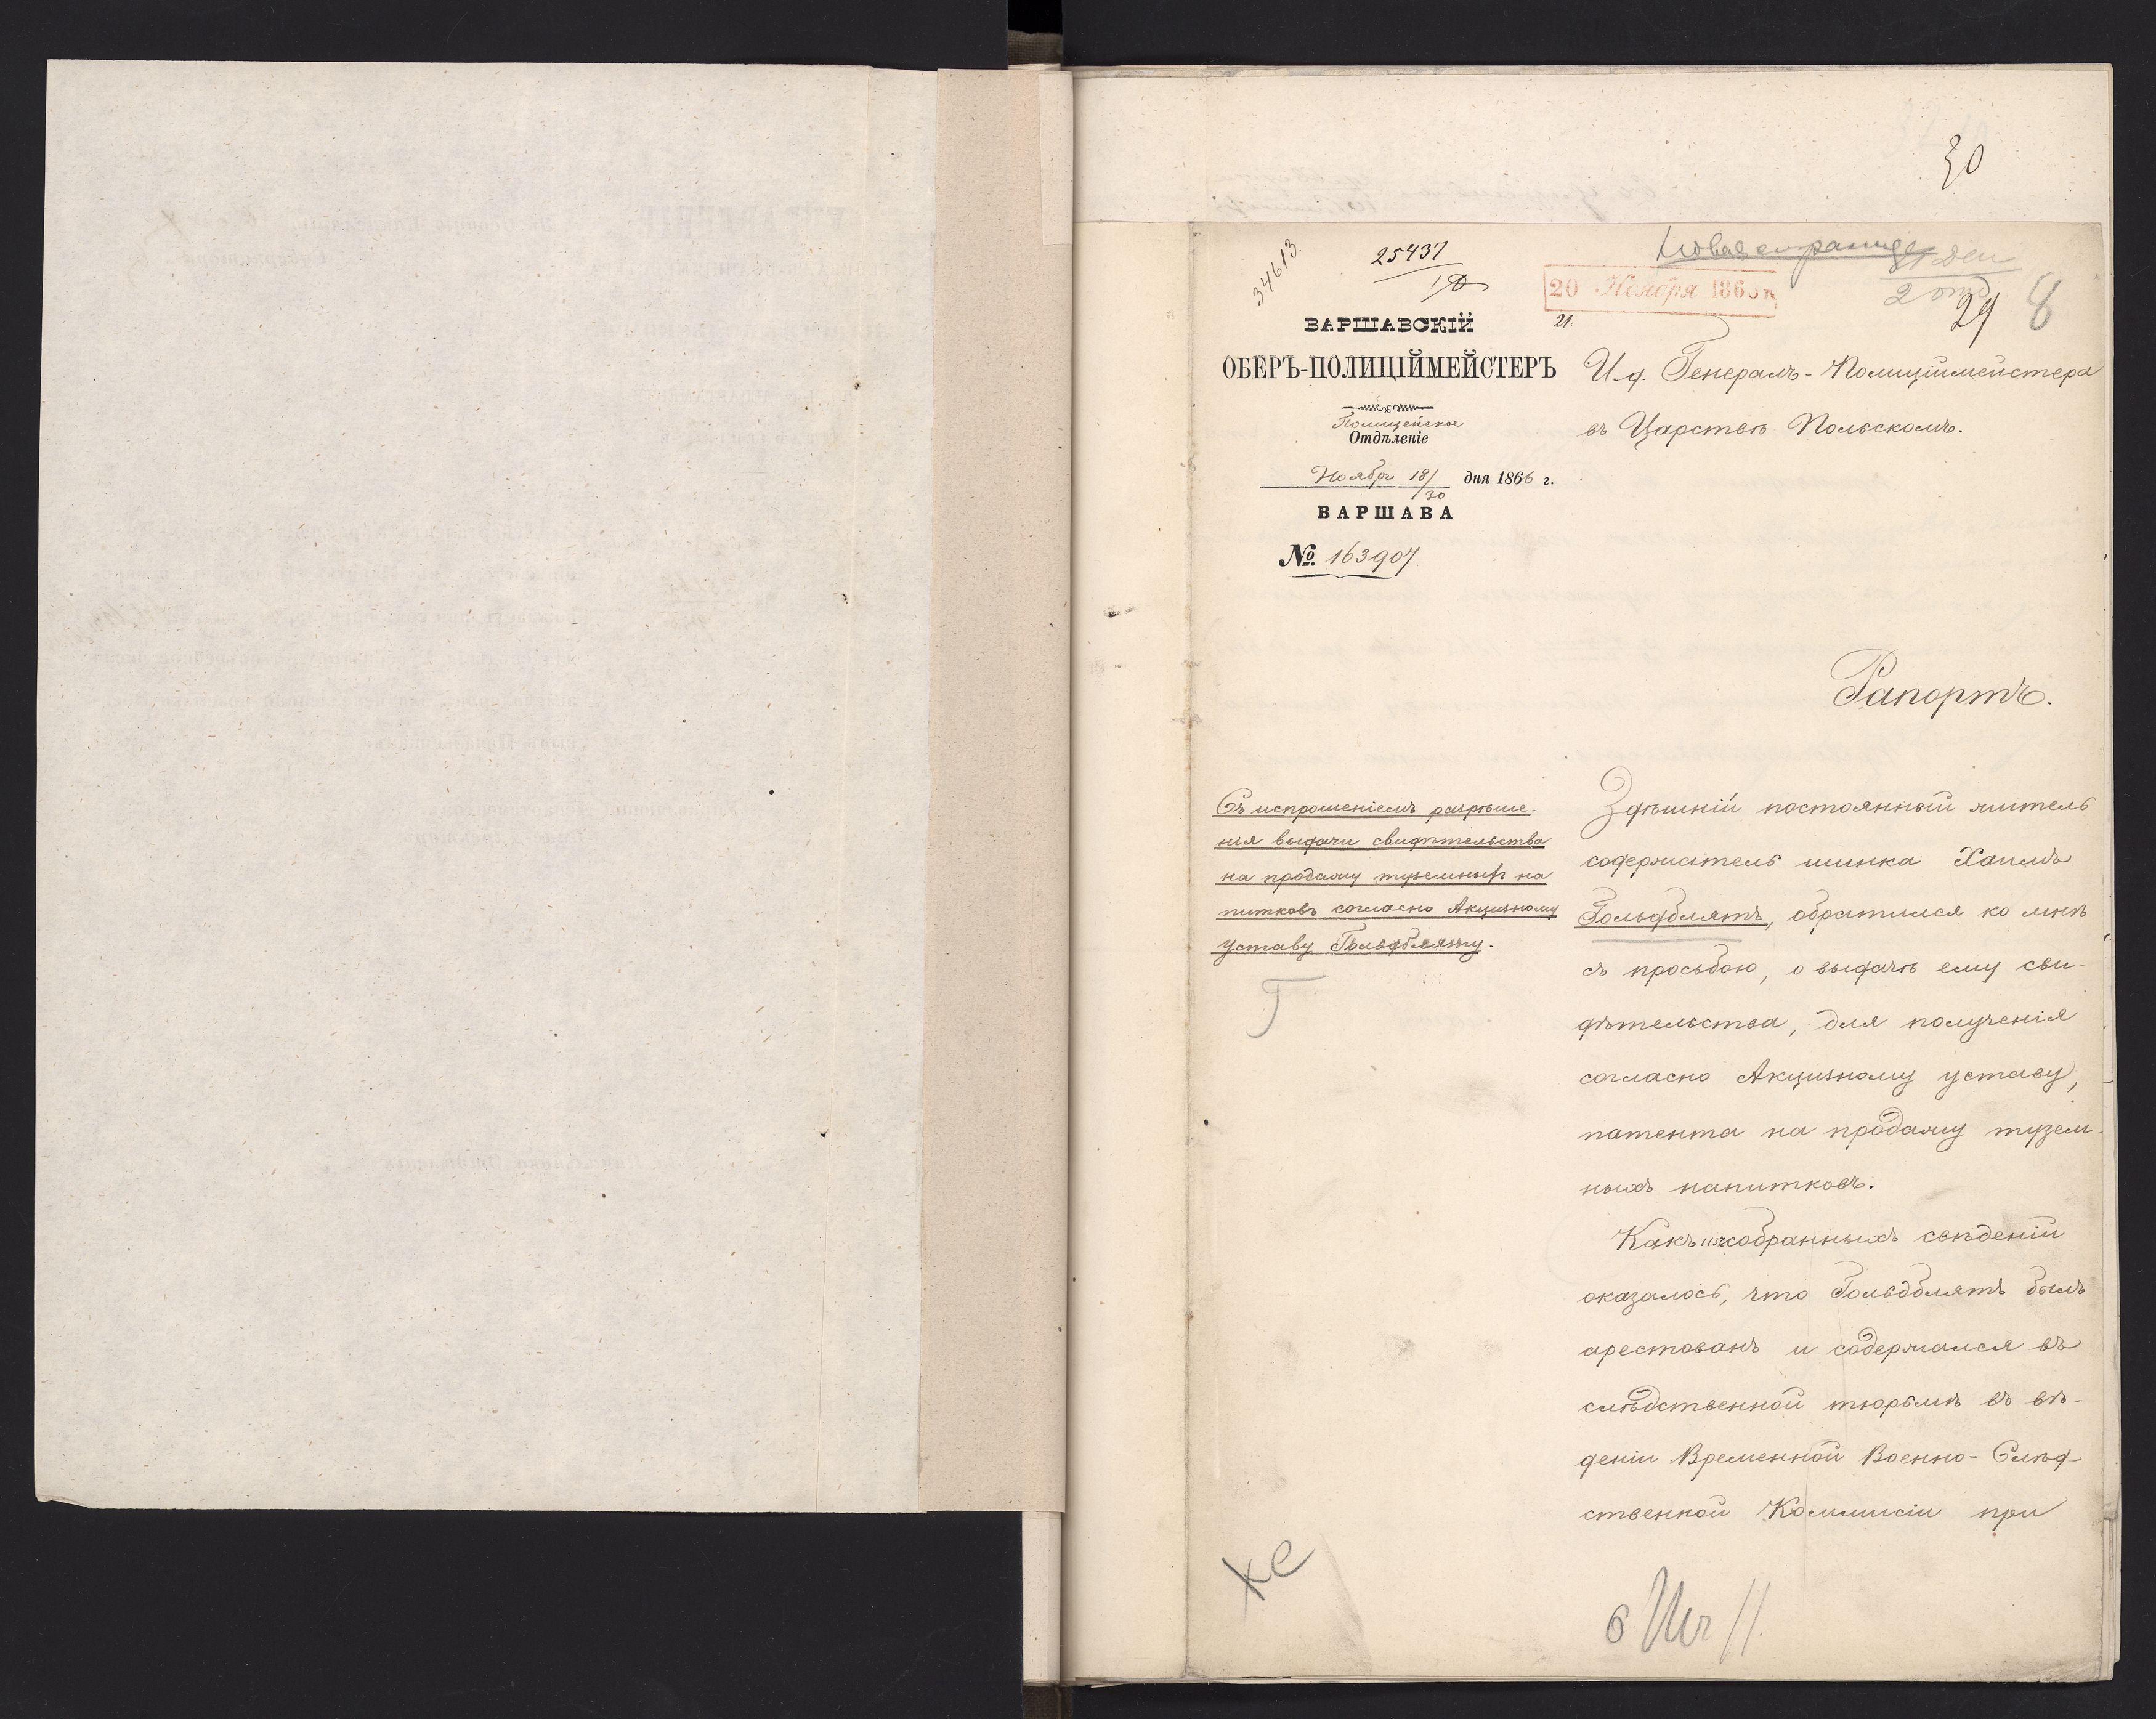 30
34613.
25437
20 Ноября 186
21.
2 отд
29
8
ВАРШАВСКІЙ
ОБЕРЪ-ПОЛИЦІЙМЕЙСТЕРЪ
Полицейское
Отдѣленіе
Ноября 18/30 дня 1866 г.
ВАРШАВА
№ 163907
И.д. Генералъ-Полиціймейстера
въ Царствѣ Польскомъ.
Рапортъ.
Съ испрошеніемъ разрѣше-
нія выдачи свидѣтельства
на продажу туземныхъ на
питковъ согласно Акцизному
уставу Гольдбляту.
Здѣшній постоянный житель
содержатель шинка Хаимъ
Гольдблятъ, обратился ко мнѣ
съ просьбою, о выдачѣ ему сви-
дѣтельства, для полученія
согласно Акцизному уставу,
патента на продажу тузем-
ныхъ напитковъ.
Какъ изъ собранныхъ свѣденій
оказалось, что Гольдблятъ былъ
арестованъ и содержался въ
слѣдственной тюрьмѣ въ вѣ-
деніи Временной Военно-Слѣд-
ственной Коммисіи при